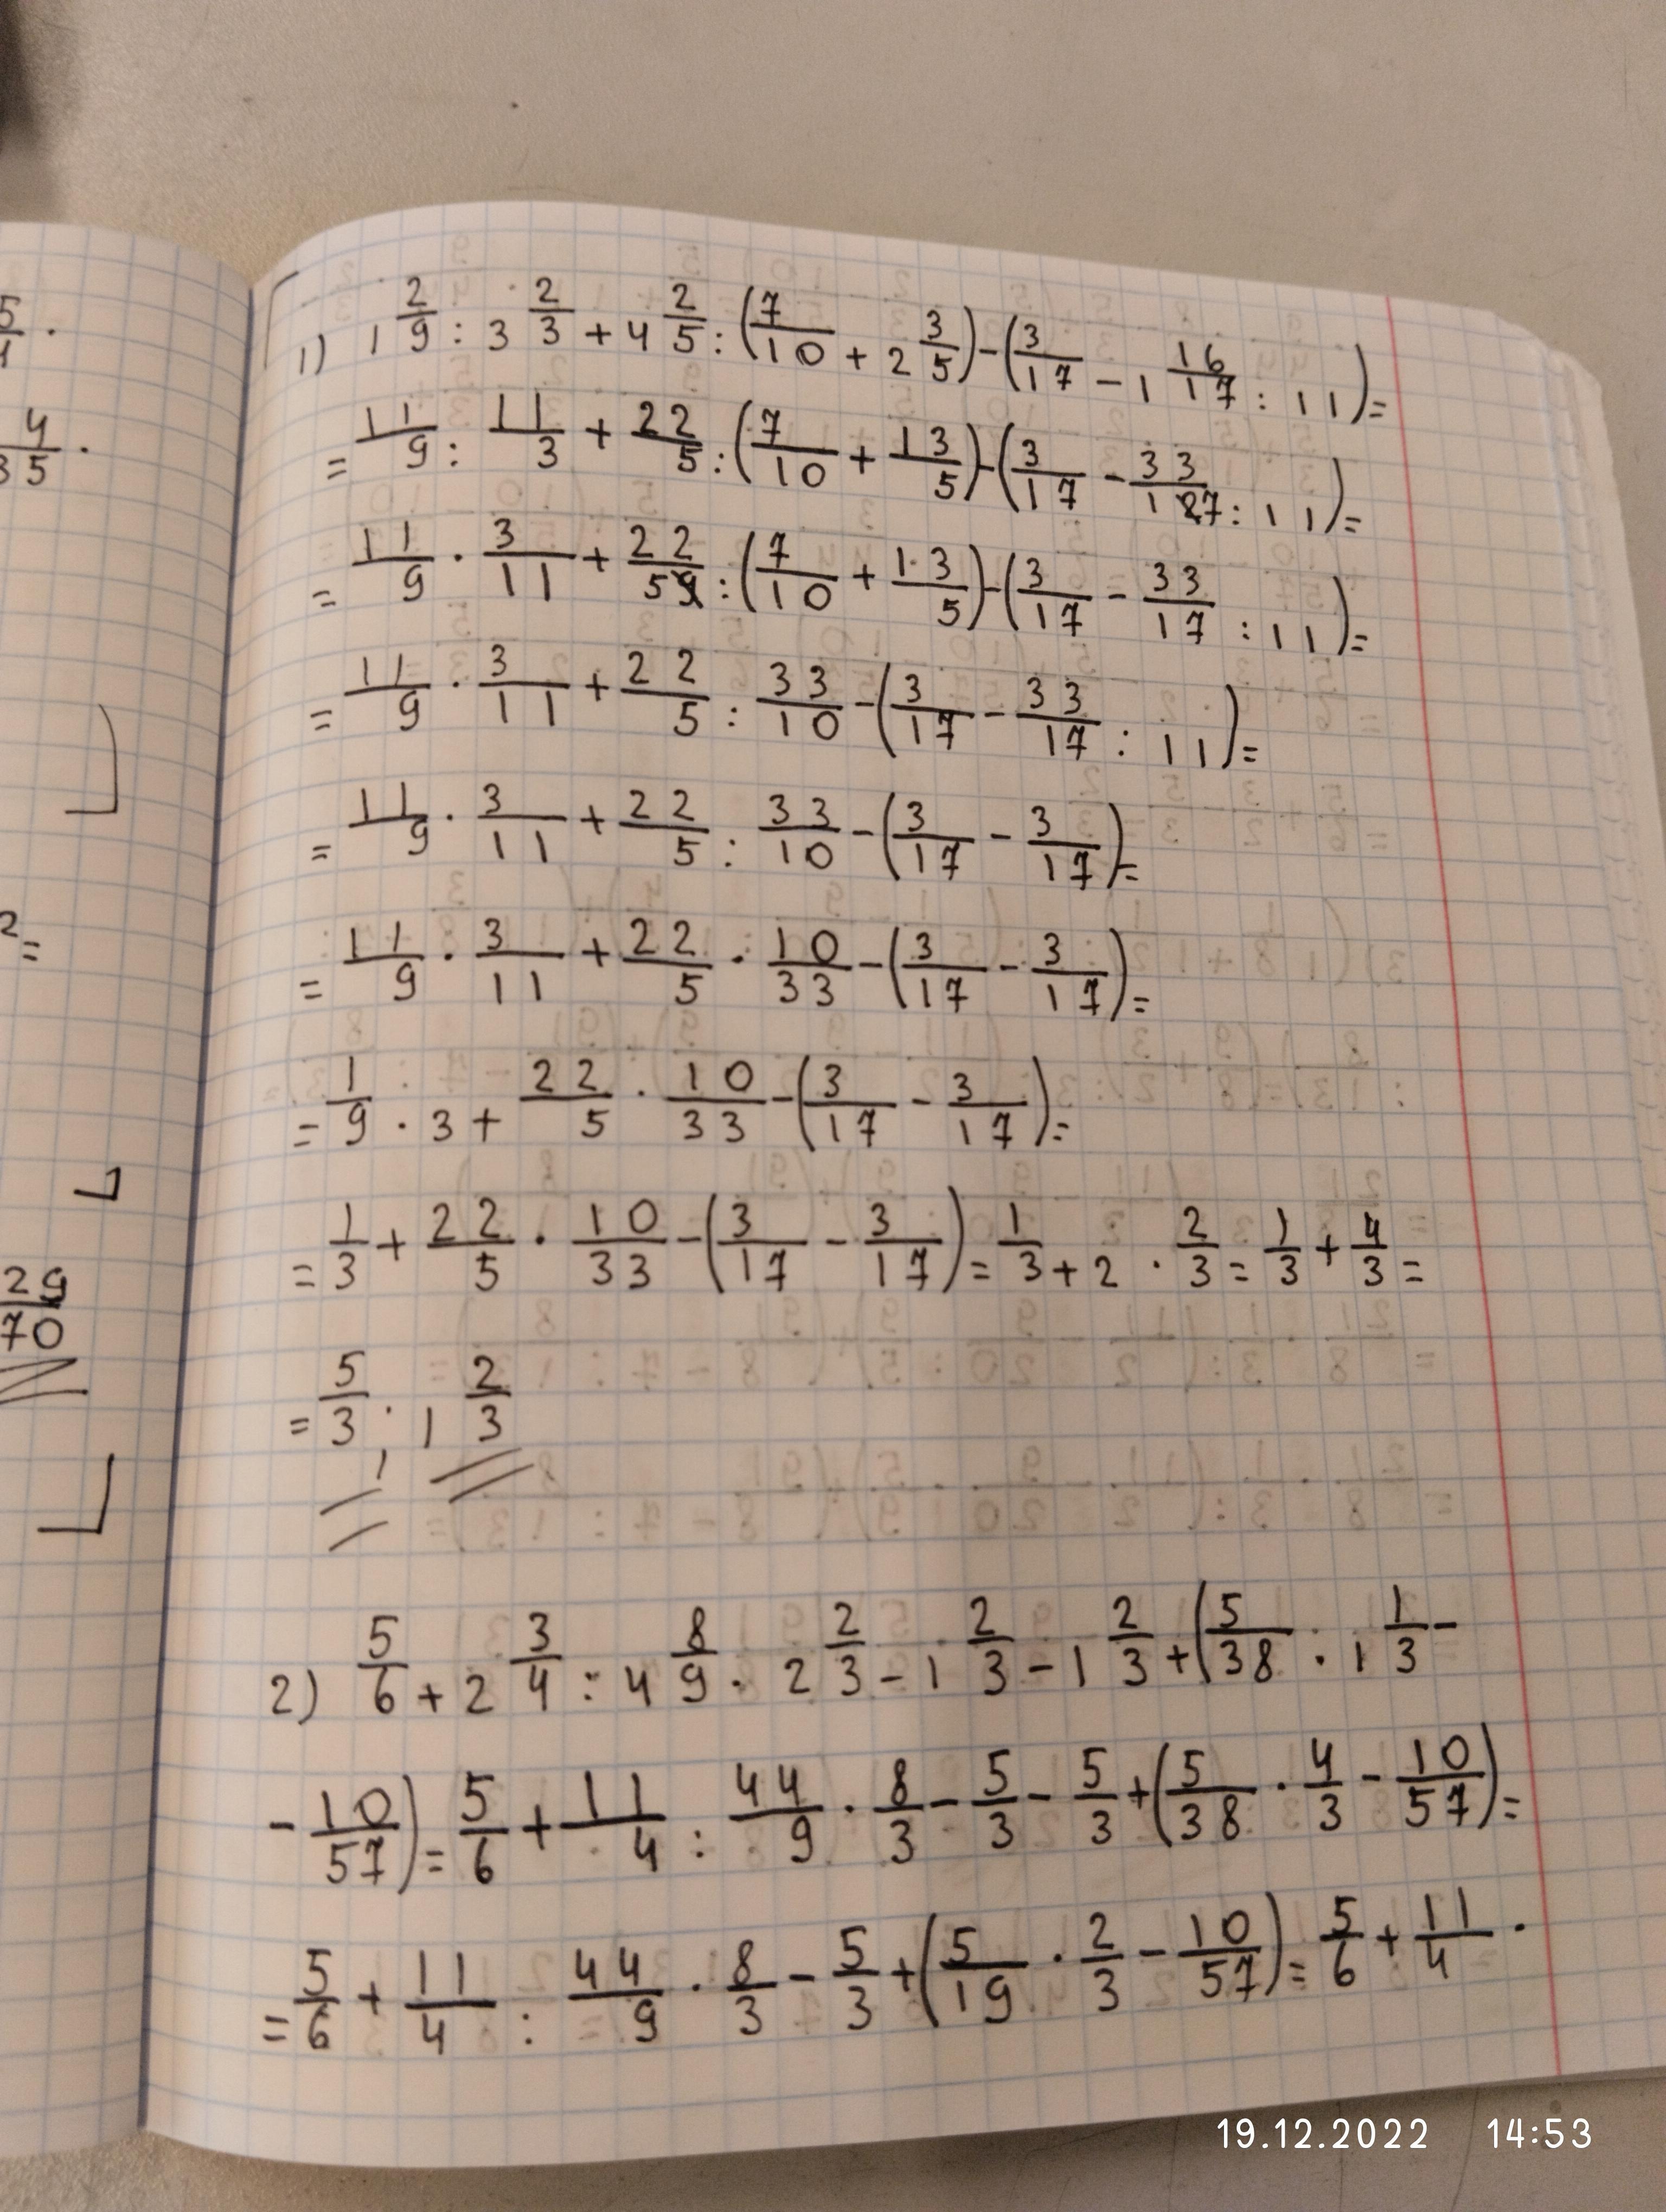 5/4 ·
3 4/5 ·
2 =
29/70
1) 1 2/9 : 3 2/3 + 4 2/5 : (7/10 + 2 3/5) - (3/17 - 1 16/17 : 11) =
= 11/9 : 11/3 + 22/5 : (7/10 + 13/5) - (3/17 - 33/17 : 11) =
= 11/9 · 3/11 + 22/5 : (7/10 + 13/5) - (3/17 - 33/17 : 11) =
= 11/9 · 3/11 + 22/5 : 33/10 - (3/17 - 33/17 : 11) =
= 11/9 · 3/11 + 22/5 : 33/10 - (3/17 - 3/17) =
= 11/9 · 3/11 + 22/5 · 10/33 - (3/17 - 3/17) =
= 1/9 · 3 + 22/5 · 10/33 - (3/17 - 3/17) =
= 1/3 + 22/5 · 10/33 - (3/17 - 3/17) = 1/3 + 2 · 2/3 = 1/3 + 4/3 =
= 5/3 ; 1 2/3
2) 5/6 + 2 3/4 : 4 8/9 · 2 2/3 - 1 2/3 - 1 2/3 + (5/38 · 1 1/3 -
- 10/57) = 5/6 + 11/4 : 44/9 · 8/3 - 5/3 - 5/3 + (5/38 · 4/3 - 10/57) =
= 5/6 + 11/4 : 44/9 · 8/3 - 5/3 + (5/19 · 2/3 - 10/57) = 5/6 + 11/4 ·
19.12.2022 14:53